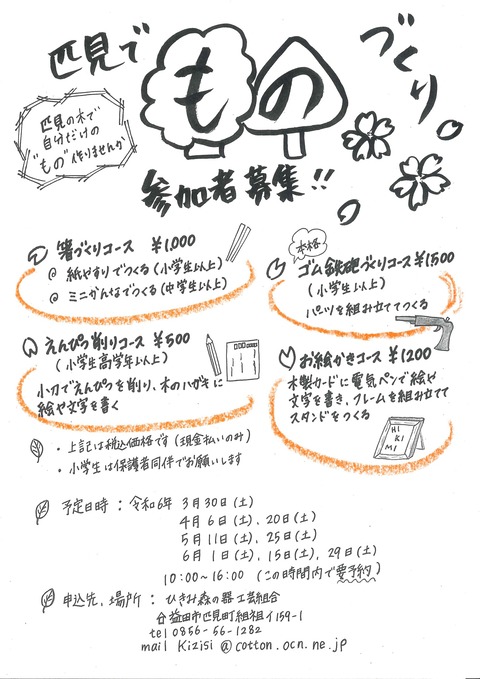 匹見で
ものづくり
匹見の木で
自分だけの
"もの"作りませんか
参加者募集!!
箸づくりコース ¥1,000
◎ 紙やすりでつくる(小学生以上)
◎ ミニかんなでつくる(中学生以上)
本格
ゴム鉄砲づくりコース ¥1500
(小学生以上)
パーツを組み立ててつくる
えんぴつ削りコース ¥500
(小学生高学年以上)
小刀でえんぴつを削り、木のハガキに
絵や文字を書く
お絵かきコース ¥1200
木製カードに電気ペンで絵や
文字を書き、フレームを組み立てて
スタンドをつくる
HI
KI
MI
・上記は税込価格です(現金払いのみ)
・小学生は保護者同伴でお願いします
予定日時 : 令和6年 3月30日(土)
4月6日(土)、20日(土)
5月11日(土)、25日(土)
6月1日(土)、15日(土)、29日(土)
10:00~16:00 (この時間内で要予約)
申込先、場所 : ひきみ森の器工芸組合
益田市匹見町紙祖イ159-1
tel 0856-56-1282
mail Kizisi@cotton.ocn.ne.jp